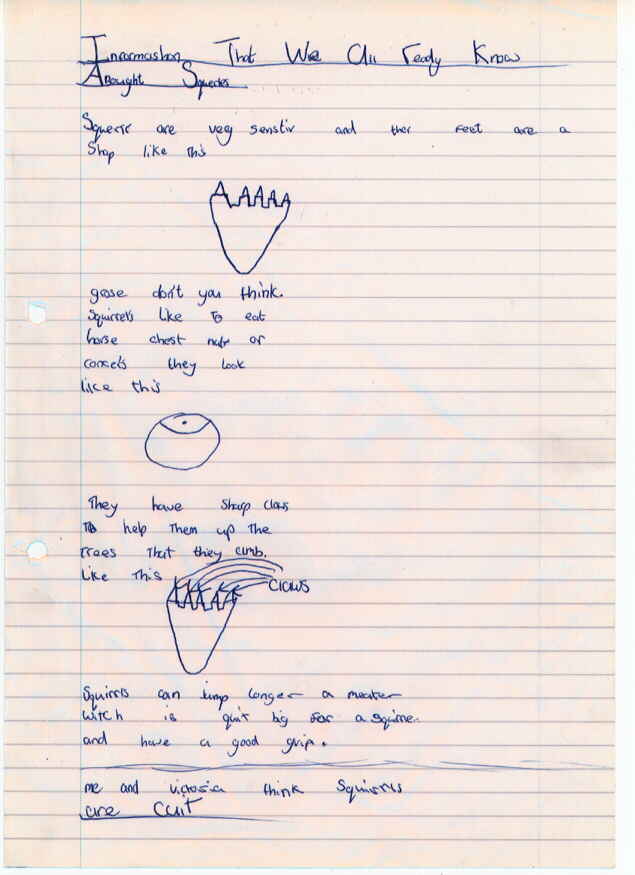 Informashon That We All ready Know
Abought Squeries
Squerir are veg senstiv and ther feet are a
Shap like this
grose don't you think.
Squirrels like To eat
horse chest nuts or
concets they look
like this
They have sharp claws
To help Them up The
trees That they climb.
Like This
claws
Squirris can jump longer a meater
witch is quit big for a squirre.
and have a good grip.
me and victoria think Squirriss
are cuit